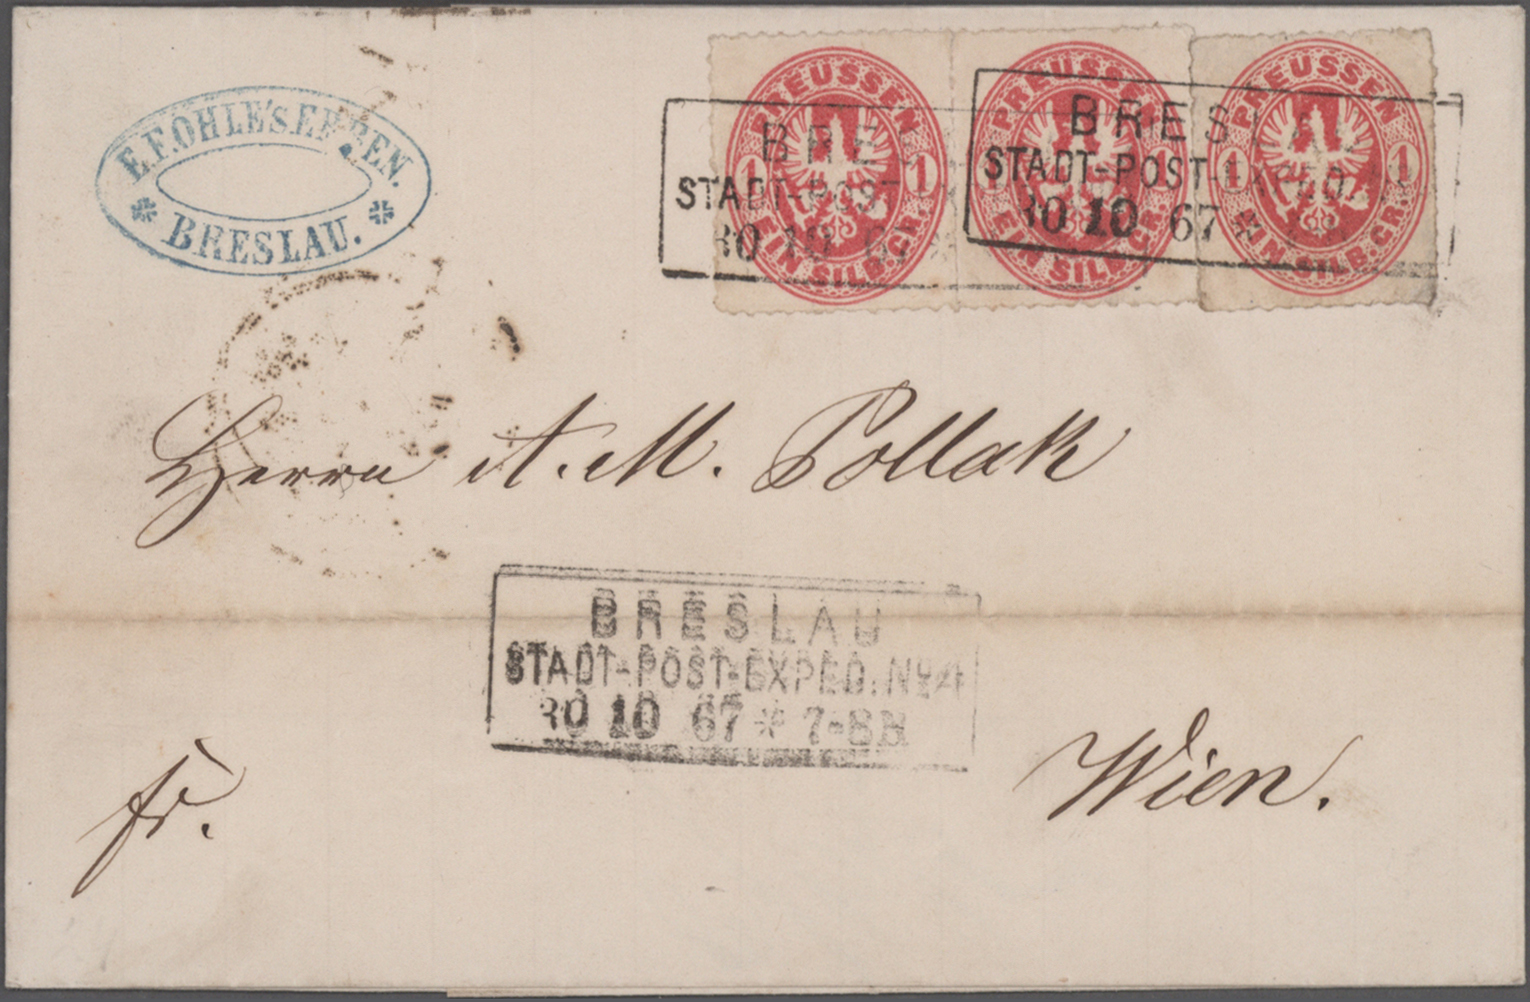 E.F. OHLE'S ERBEN.
* BRESLAU. *
PREUSSEN
1 1
EIN SILB. GR.
PREUSSEN
1
EIN SILB. GR.
PREUSSEN
1 1
EIN SILB. GR.
BRE
STADT-POST
30 10 67 *
BRESLAU
STADT-POST-EXPED.
30 10 67 *
Herrn A. M. Pollak
BRESLAU
STADT-POST-EXPED. No 4
30 10 67 * 7-8 N
Wien.
fr.